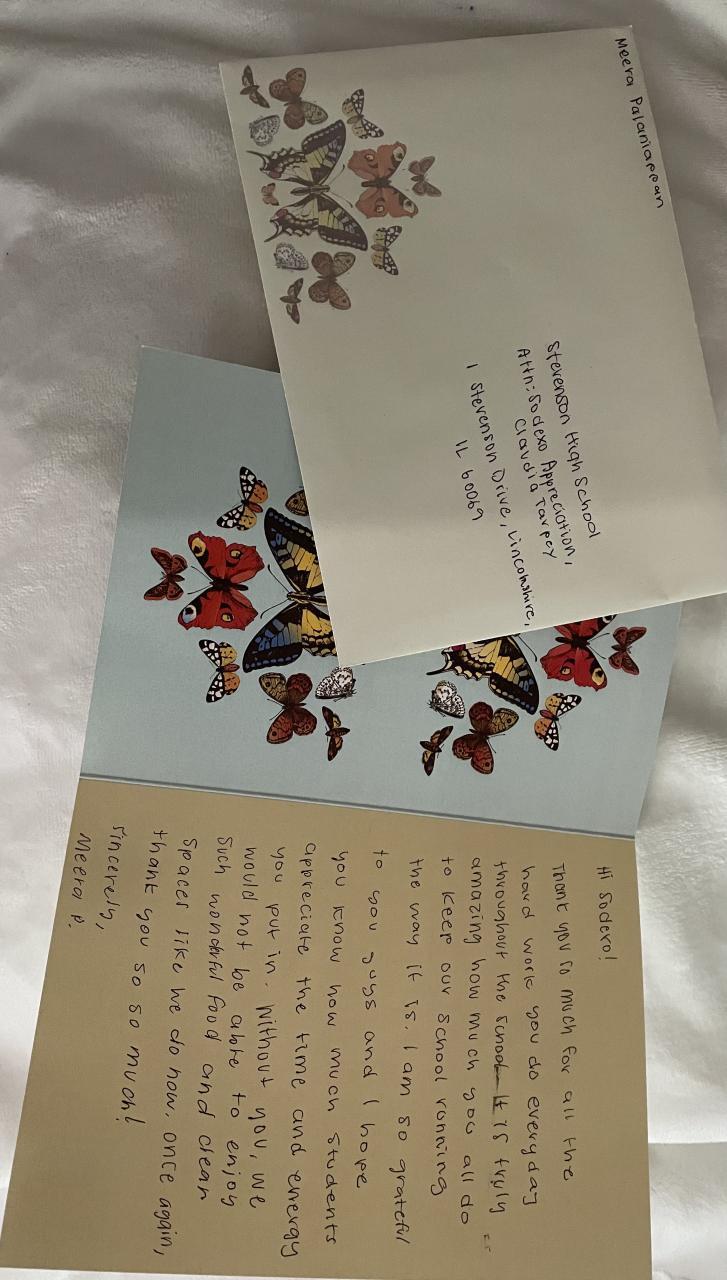 Meera Palaniappan
Stevenson High School
Attn: Sodexo Appreciation,
Claudia Tarpey
1 Stevenson Drive, Lincolnshire,
IL 60069
Hi Sodexo!
Thank you so much for all the
hard work you do everyday
throughout the school. It is truly
amazing how much you all do
to keep our school running
the way it is. I am so grateful
to you guys and I hope
you know how much students
appreciate the time and energy
you put in. Without you, we
would not be able to enjoy
such wonderful food and clean
spaces like we do now. Once again,
thank you so so much!
Sincerely,
Meera P.